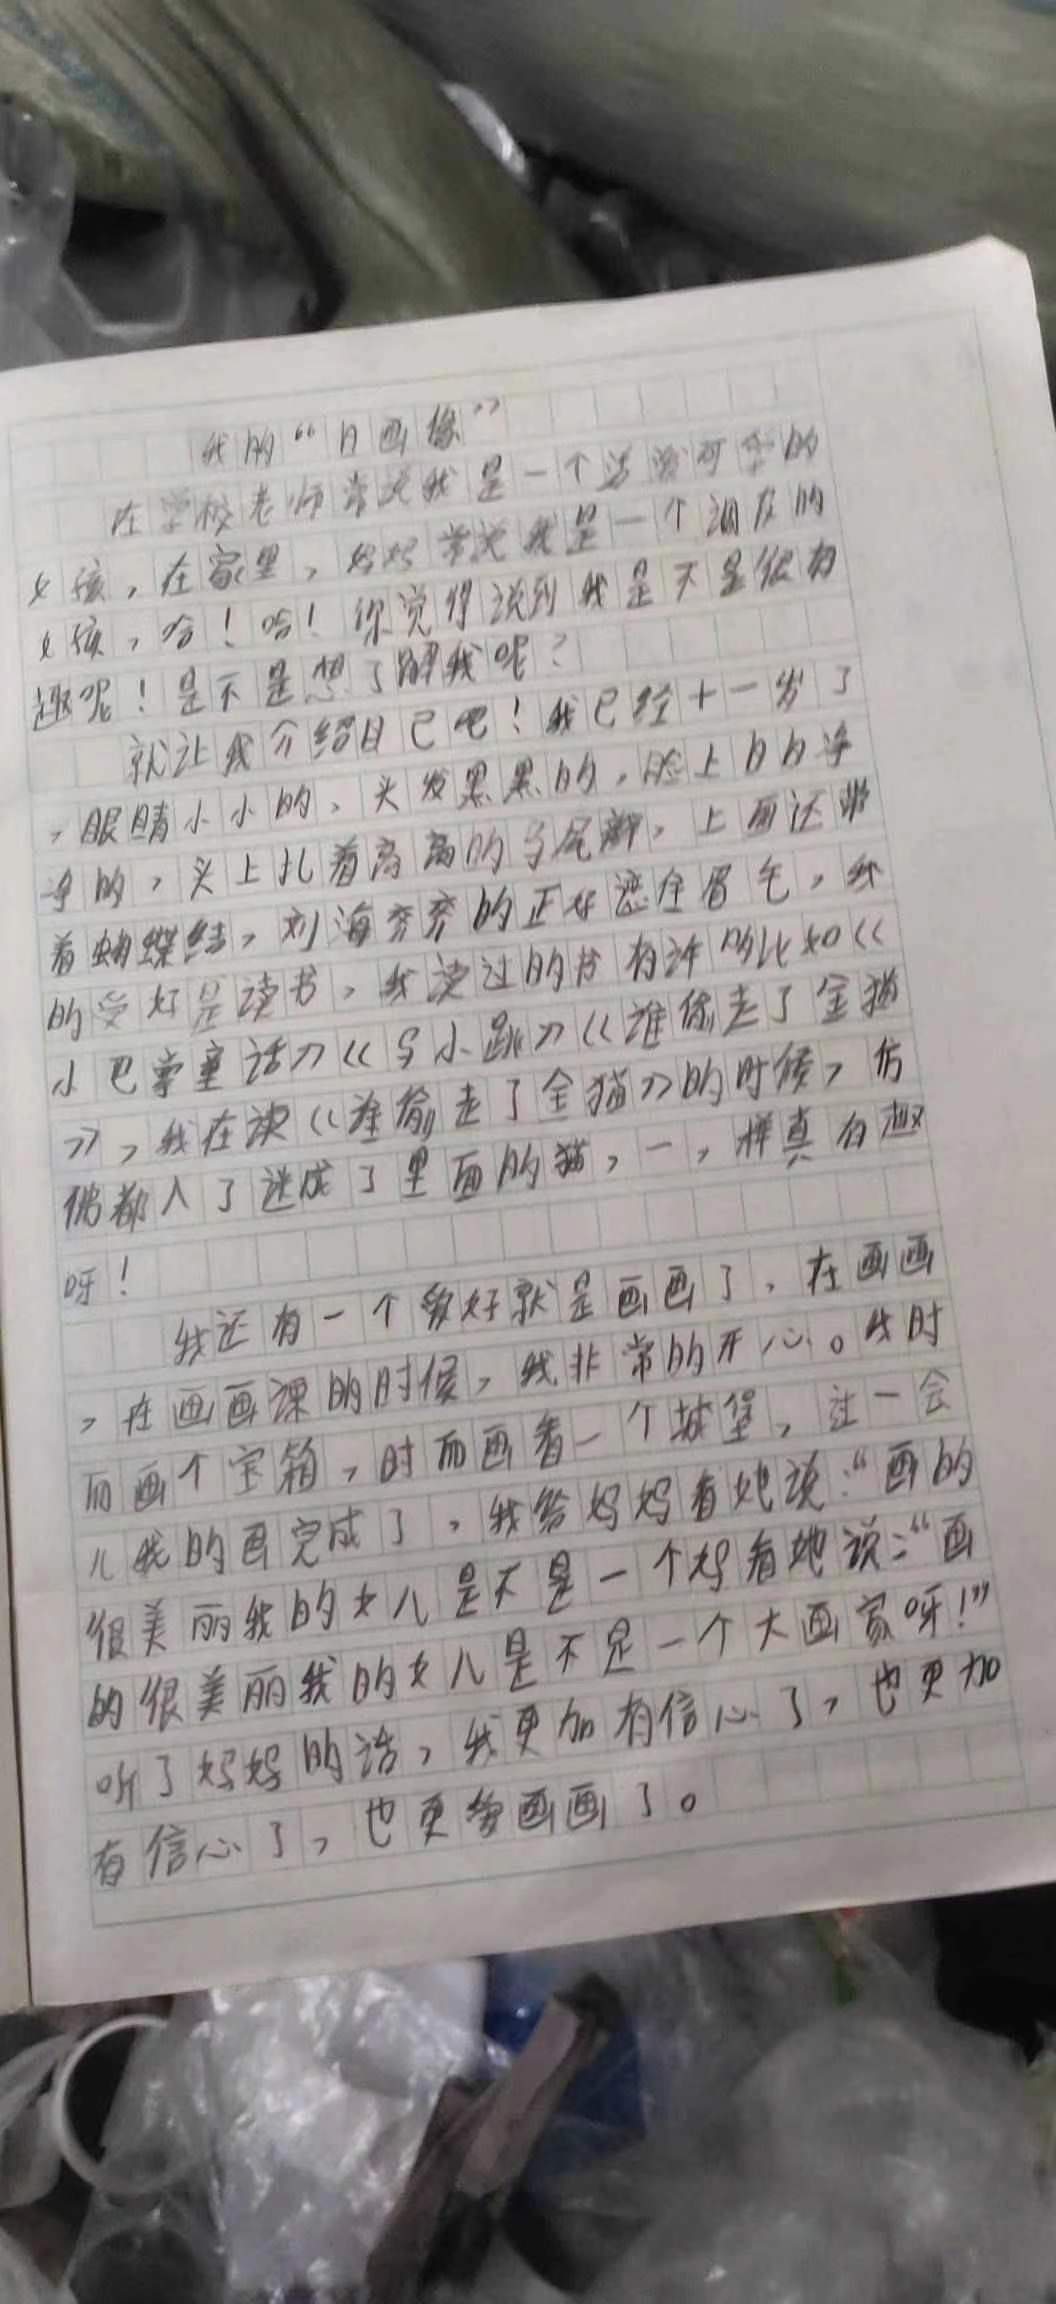 我的“自画像”
在学校老师常说我是一个活泼可爱的
女孩，在家里，妈妈常说我是一个调皮的
女孩，哈！哈！你觉得说到我是不是很有
趣呢！是不是想了解我呢？
就让我介绍自己吧！我已经十一岁了
，眼睛小小的，头发黑黑的，脸上白白净
净的，头上扎着高高的马尾辫，上面还带
着蝴蝶结，刘海齐齐的正好遮住眉毛，我
的爱好是读书，我读过的书有许多比如《
小巴掌童话》《马小跳》《谁偷走了金猫
》，我在读《谁偷走了金猫》的时候，仿
佛都入了迷成了里面的猫，一，样真有趣
呀！
我还有一个爱好就是画画了，在画画
，在画画课的时候，我非常的开心。我时
而画个宝箱，时而画着一个城堡，过一会
儿我的画完成了，我给妈妈看她说：“画的
很美丽我的女儿是不是一个妈看她说：“画
的很美丽我的女儿是不是一个大画家呀！”
听了妈妈的话，我更加有信心了，也更加
有信心了，也更爱画画了。